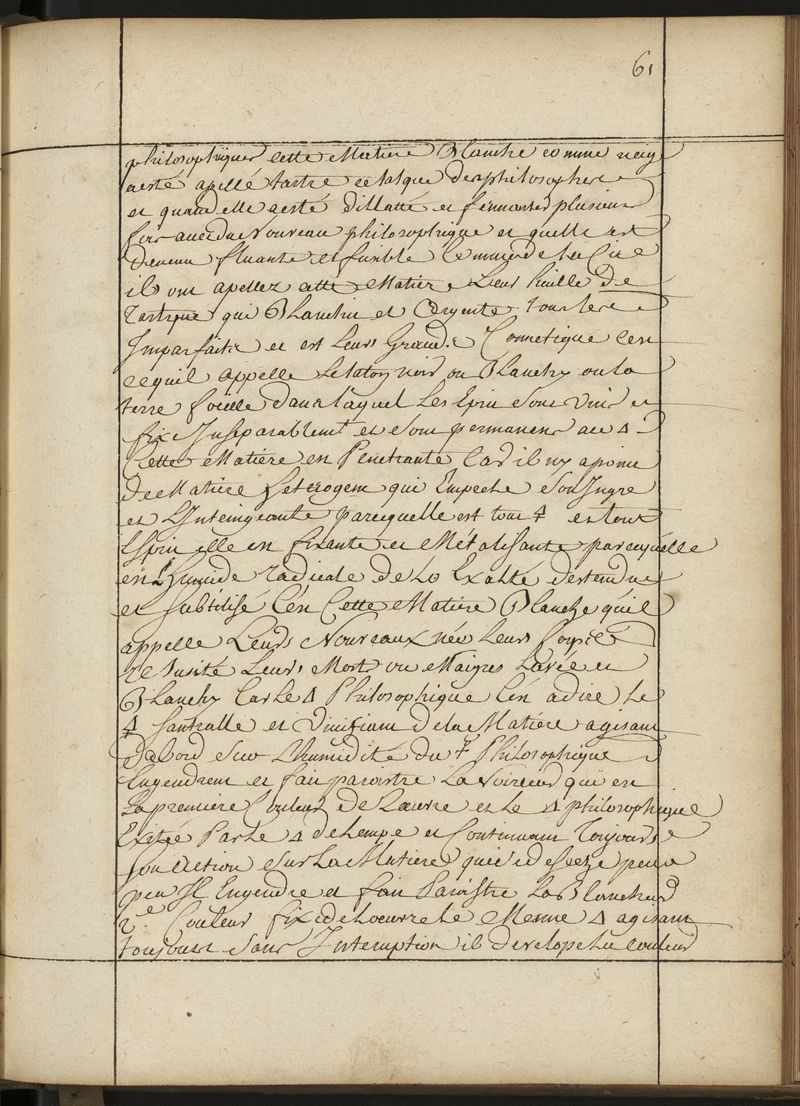 61
philosophiques cette Matiere Blanche comme neige
a esté apellé tartre et talque des philosophes
et quand elle a esté dillatté et fermenter plusieurs
fois avec du Nouveau philosophique et quelle est
devenu fluante et fusible comme de la Cire
ils ont apellez cette Matiere Leur huille De
Talque qui Blanchit et Argente tous les
Imparfaits et est Leurs Grand Cosmetique C'en
ce quil appelle Le laton noir ou Blanchy ou la
terre foeillé dans laquel Les Esprit Sont Unis et
fixe Inseparablement et Sont permanens au 🜂
Cette Matiere en Penetrante Car il ny a point
De Matiere heterogene qui Empeche Son Ingre
et parcequelle est tout et tout
Esprit elle en fixante et Métalisante parcequelle
en L'humide radicale De Lo Exalté destendue
et Subtilisé C'en Cette Matiere Blanche quil
appelle Leurs Nouveaux née Leurs Corps
resusité Leurs Mort ou Maigres Lavée et
Blanchy Car Le 🜂 Philosophique C'en a dire le
Santralle et Vivifiant de la Matiere agisant
Dabord Sur L'humidité du Philosophique
Engendrent et fait paroistre La Noirceur qui en
La premiere Couleur de L'œuvre et Le 🜂 philosophique
Exitée Par Le 🜂 de Lempe et Continuant Toujours
Son Action Sur La Matiere peu a
peu Il Engendre et fait Paroistre La Blancheur
2e Couleur fixe de Loeuvre Le Mesme 🜂 agisant
toujours Sans Interuption il develope La couleur